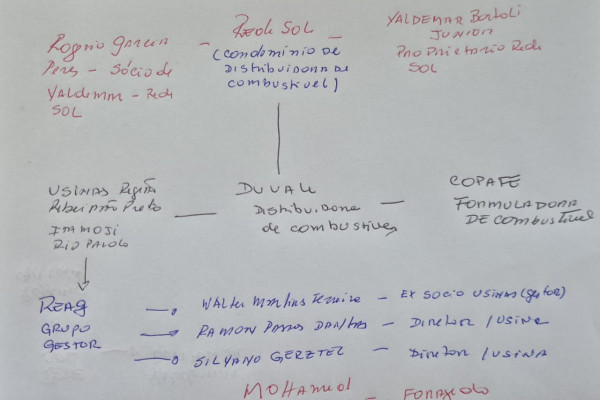 Rede SOL
(CONDOMÍNIO DE
DISTRIBUIDORA DE
COMBUSTIVEL)
Rogerio Garcia
Peres - Sócio de
Valdemar - Rede
SOL
VALDEMAR Bortoli
JUNIOR
PROPRIETARIO Rede
SOL
USINAS Região
Ribeirão Preto
ITAMOJI
RIO PARDO
DUVALE
Distribuidora
de combustíveis
COPAPE
FORMULADORA
DE COMBUSTIVEL
REAG
GRUPO
GESTOR
WALTER Martins Ferreira - EX SOCIO USINAS (gestor)
RAMON Passos DANTAS - DIRETOR / USINA
SILVANO GERZTEL - DIRETOR / USINA
MOHAMED -